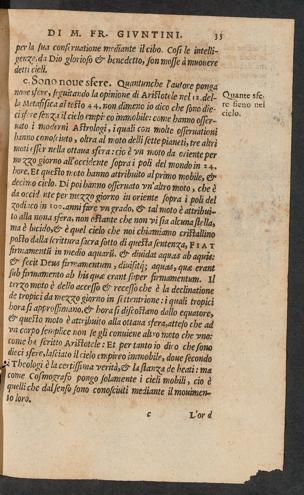 DI M. FR. GIVNTINI. 33
per la sua conseruatione mediante il cibo. Cosi le intelli-
genze da Dio glorioso & benedetto, son mosse à muouere
detti cieli.
c. Sono noue sfere. Quantunche l'autore ponga
noue sfere, seguitando la opinione di Aristotele nel 12. del-
la Metafisica al testo 44. non dimeno io dico che sono die-
ci sfere senza il cielo empireo immobile: come hanno osser-
uato i moderni Astrologi, i quali con molte osseruationi
hanno conosciuto, oltra al moto delli sette pianeti, tre altri
moti esser nella ottaua sfera: cio è vn moto da oriente per
mezzo giorno all'occidente sopra i poli del mondo in 24.
hore. Et questo moto hanno attribuito al primo mobile, &
decimo cielo. Di poi hanno osseruato vn'altro moto, che è
da occidente per mezzo giorno in oriente sopra i poli del
zodiaco in 200. anni fare vn grado, & tal moto è attribui-
to alla nona sfera, non ostante che non vi sia alcuna stella,
ma è lucido, & è quel cielo che noi chiamiamo cristallino
posto dalla scrittura sacra sotto di questa sentenza, FIAT
firmamentũ in medio aquarũ, & diuidat aquas ab aquis:
& fecit Deus firmamentum, diuisitq; aquas, quæ erant
sub firmamento ab his quæ erant super firmamentum. Il
terzo moto è dello accesso & recesso che è la declinatione
de tropici da mezzo giorno in settentrione: i quali tropici
hora si approssimano, & hora si discostano dallo equatore,
& questo moto è attribuito alla ottaua sfera, atteso che ad
vn corpo semplice non se gli conuiene altro moto che vno:
come ha scritto Aristotele: Et per tanto io dico che sono
dieci sfere, lasciato il cielo empireo immobile, doue secondo
i Theologi è la certissima verità, & la stanza de beati: ma
come Cosmografo pongo solamente i cieli mobili, cio è
quelli che dal senso sono conosciuti mediante il mouimen-
to loro.
Quante sfe-
re sieno nel
cielo.
c L'or d